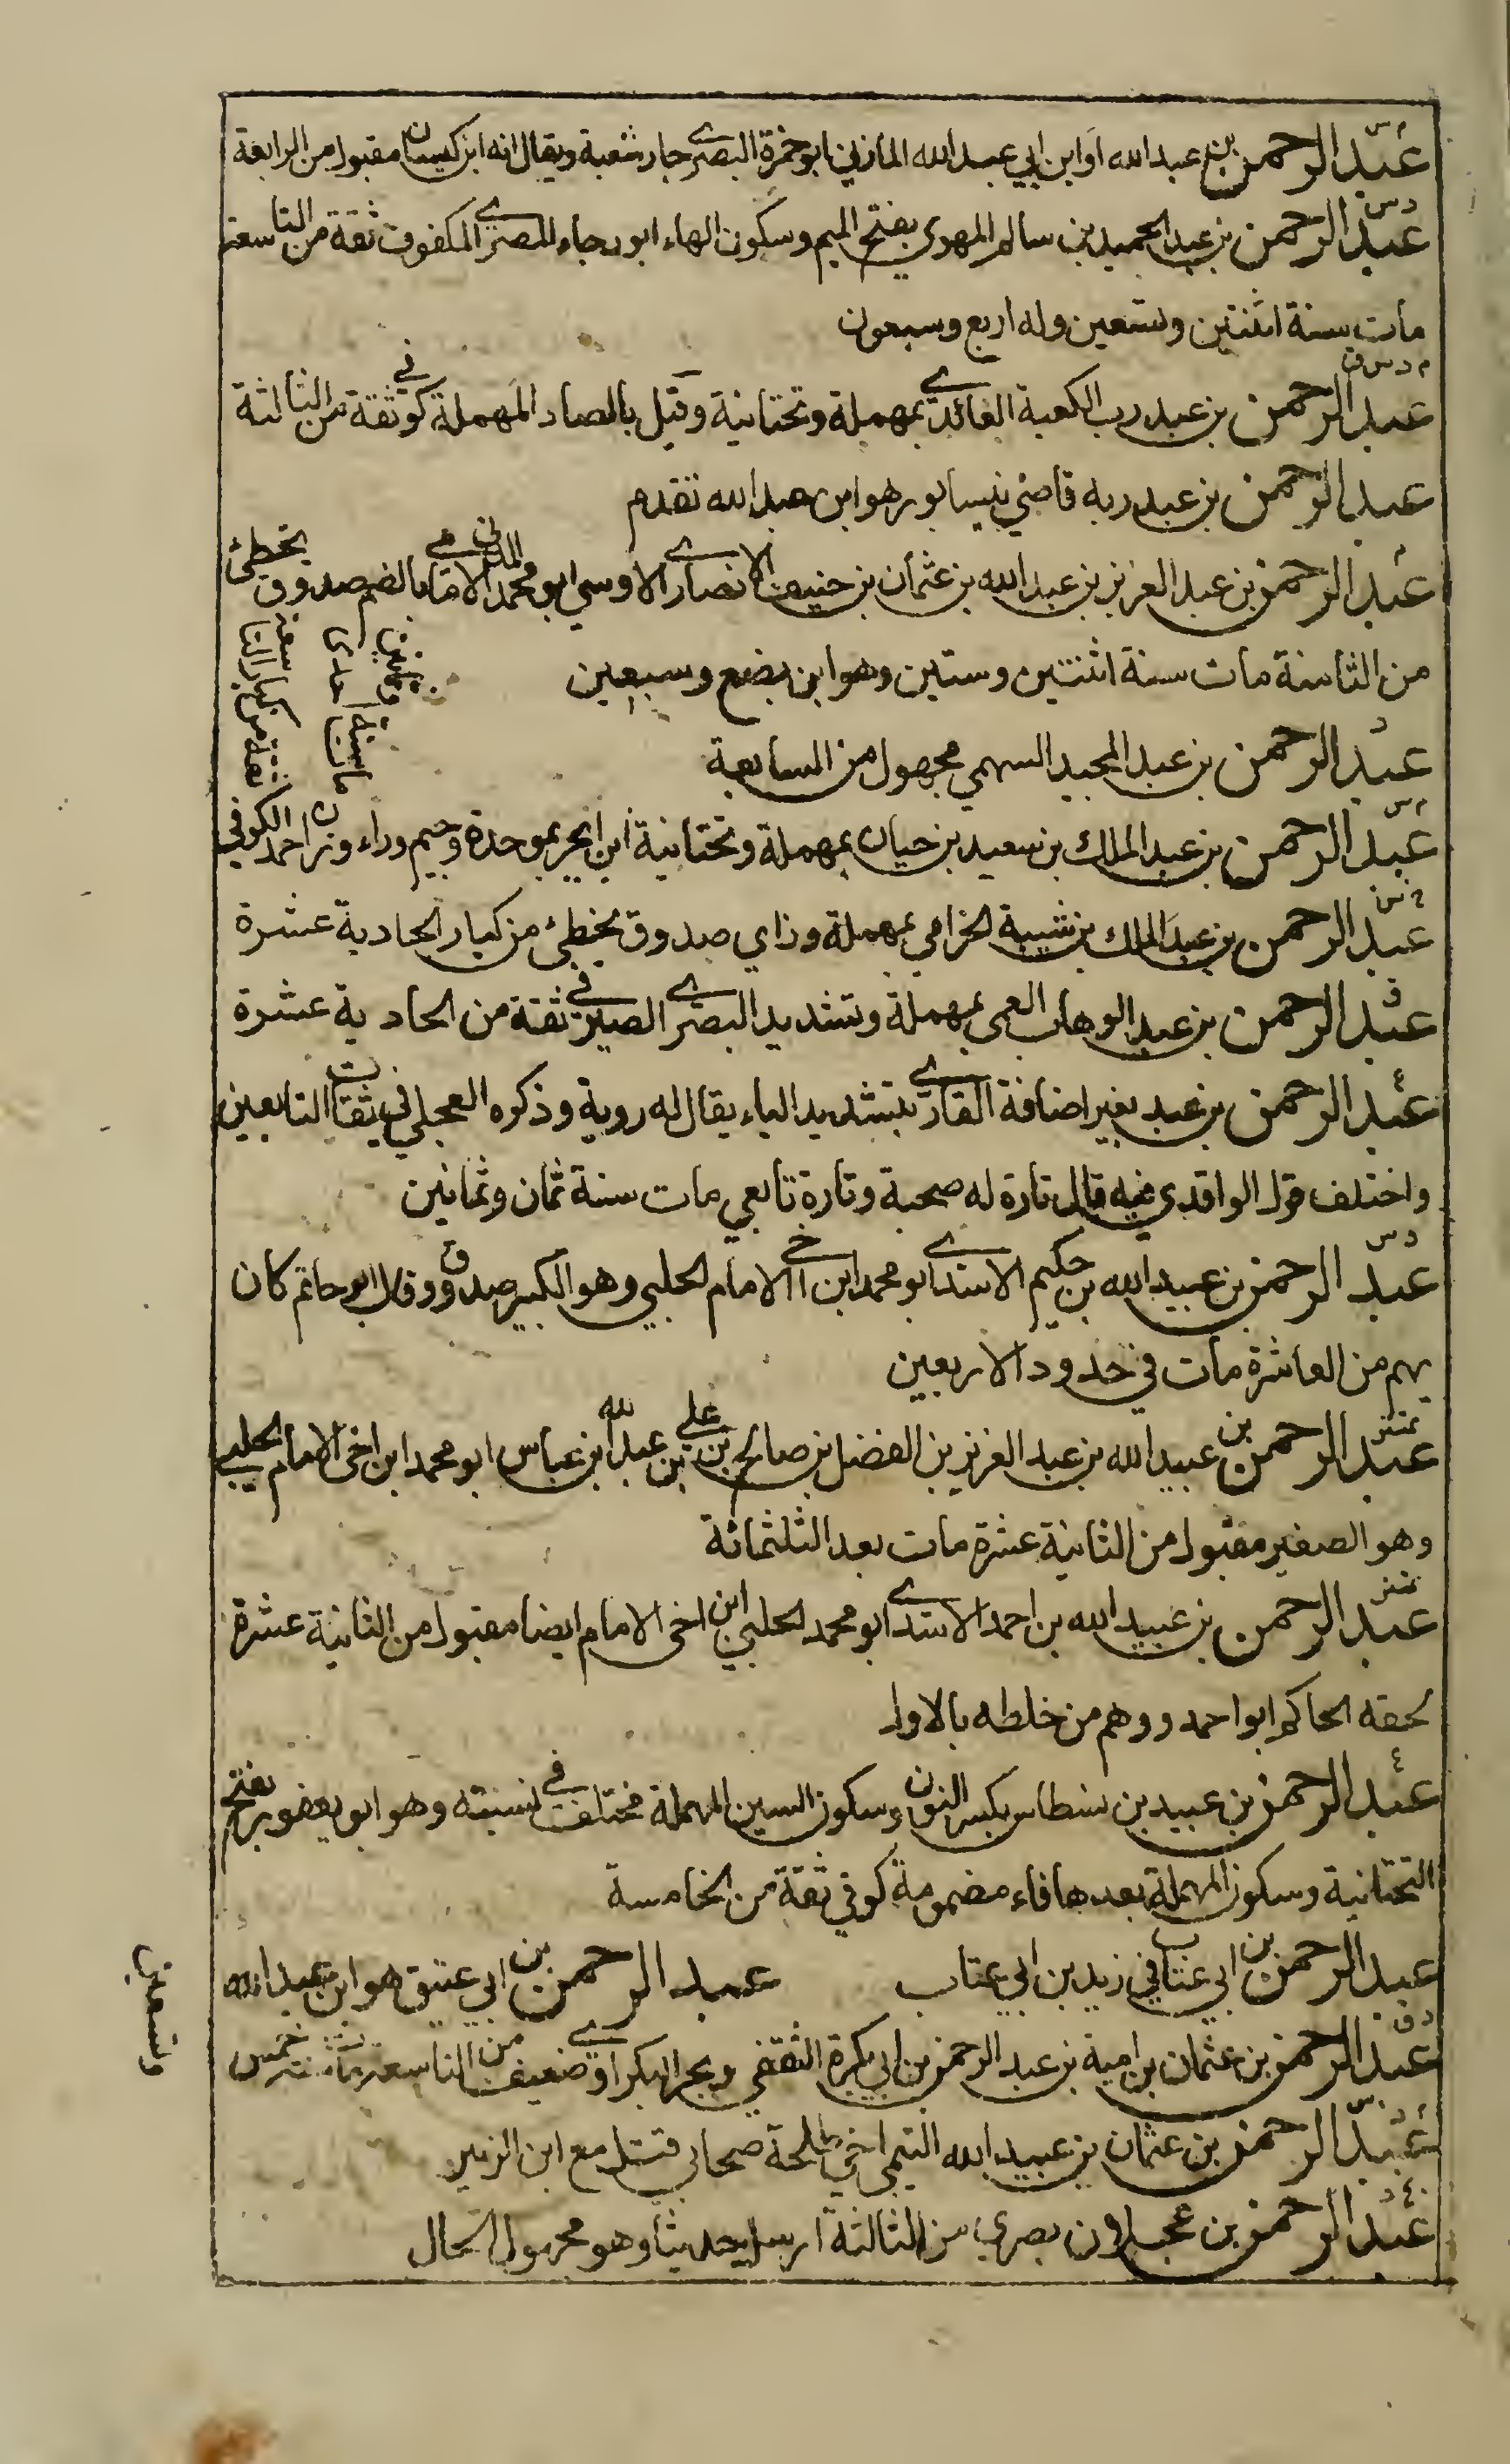 م س
عبد الرحمن بن عبد الله او ابن ابي عبد الله المازني ابو حمزة البصري جار شعبة ويقال انه ابن كيسان مقبول من الرابعة
د س
عبد الرحمن بن عبد الحميد بن سالم المهري بفتح الميم وسكون الهاء ابو رجاء المصري المكفوف ثقة من التاسعة
مات سنة اثنتين وتسعين وله اربع وسبعون
م د س ق
عبد الرحمن بن عبد رب الكعبة العائذي بمهملة وتحتانية وقيل بالصاد المهملة كوفي ثقة من الثالثة
عبد الرحمن بن عبد ربه قاضي نيسابور هو ابن عبد الله تقدم
م
عبد الرحمن بن عبد العزيز بن عبد الله بن عثمان بن حنيف الانصاري الاوسي ابو محمد المدني الامامي بالضم صدوق يخطئ
من الثامنة مات سنة اثنتين وستين وهو ابن بضع وسبعين
د
عبد الرحمن بن عبد المجيد السهمي مجهول من السابعة
م س
عبد الرحمن بن عبد الملك بن سعيد بن حيان بمهملة وتحتانية ابن ابجر بموحدة وجيم وراء وزن احمد الكوفي
ثقة من كبار التاسعة
مات سنة احدى وثمانين
خ س
عبد الرحمن بن عبد الملك بن شيبة الحزامي بمهملة وزاي صدوق يخطئ من كبار الحادية عشرة
ق
عبد الرحمن بن عبد الوهاب العمي بمهملة وتشديد البصري الصيرفي ثقة من الحادية عشرة
ع
عبد الرحمن بن عبد بغير اضافة القاري بتشديد الياء يقال له روية وذكره العجلي في ثقات التابعين
واختلف قول الواقدي فيه قال تارة له صحبة وتارة تابعي مات سنة ثمان وثمانين
د س
عبد الرحمن بن عبيد الله بن حكيم الاسدي ابو محمد ابن اخي الامام الحلبي وهو الكبير صدوق وقال ابو حاتم كان
يهم من العاشرة مات في حدود الاربعين
تمييز
عبد الرحمن بن عبيد الله بن عبد العزيز بن الفضل بن صالح بن علي بن عبد الله ابن عباس ابو محمد ابن اخي الامام الحلبي
وهو الصغير مقبول من الثانية عشرة مات بعد الثلثمائة
تمييز
عبد الرحمن بن عبيد الله بن احمد الاسدي ابو محمد الحلبي ابن اخي الامام ايضا مقبول من الثانية عشرة
لحقه الحاكم ابو احمد ووهم من خلطه بالاول
ع
عبد الرحمن بن عبيد بن نسطاس بكسر النون وسكون السين المهملة مختلف في نسبته وهو ابو يعفور بفتح
التحتانية وسكون المهملة بعدها فاء مضمومة كوفي ثقة من الخامسة
عبد الرحمن بن ابي عتاب في زيد بن ابي عتاب عبد الرحمن بن ابي عتيق هو ابن عبد الله
د ق
عبد الرحمن بن عثمان بن امية بن عبد الرحمن بن ابي بكرة الثقفي ابو بحر البكراوي ضعيف من التاسعة مات سنة خمس
وتسعين
م د س
عبد الرحمن بن عثمان بن عبيد الله التيمي اخي طلحة صحابي قتل مع ابن الزبير
د
عبد الرحمن بن عجلان بصري من الثالثة ارسل حديثا وهو مجهول الحال